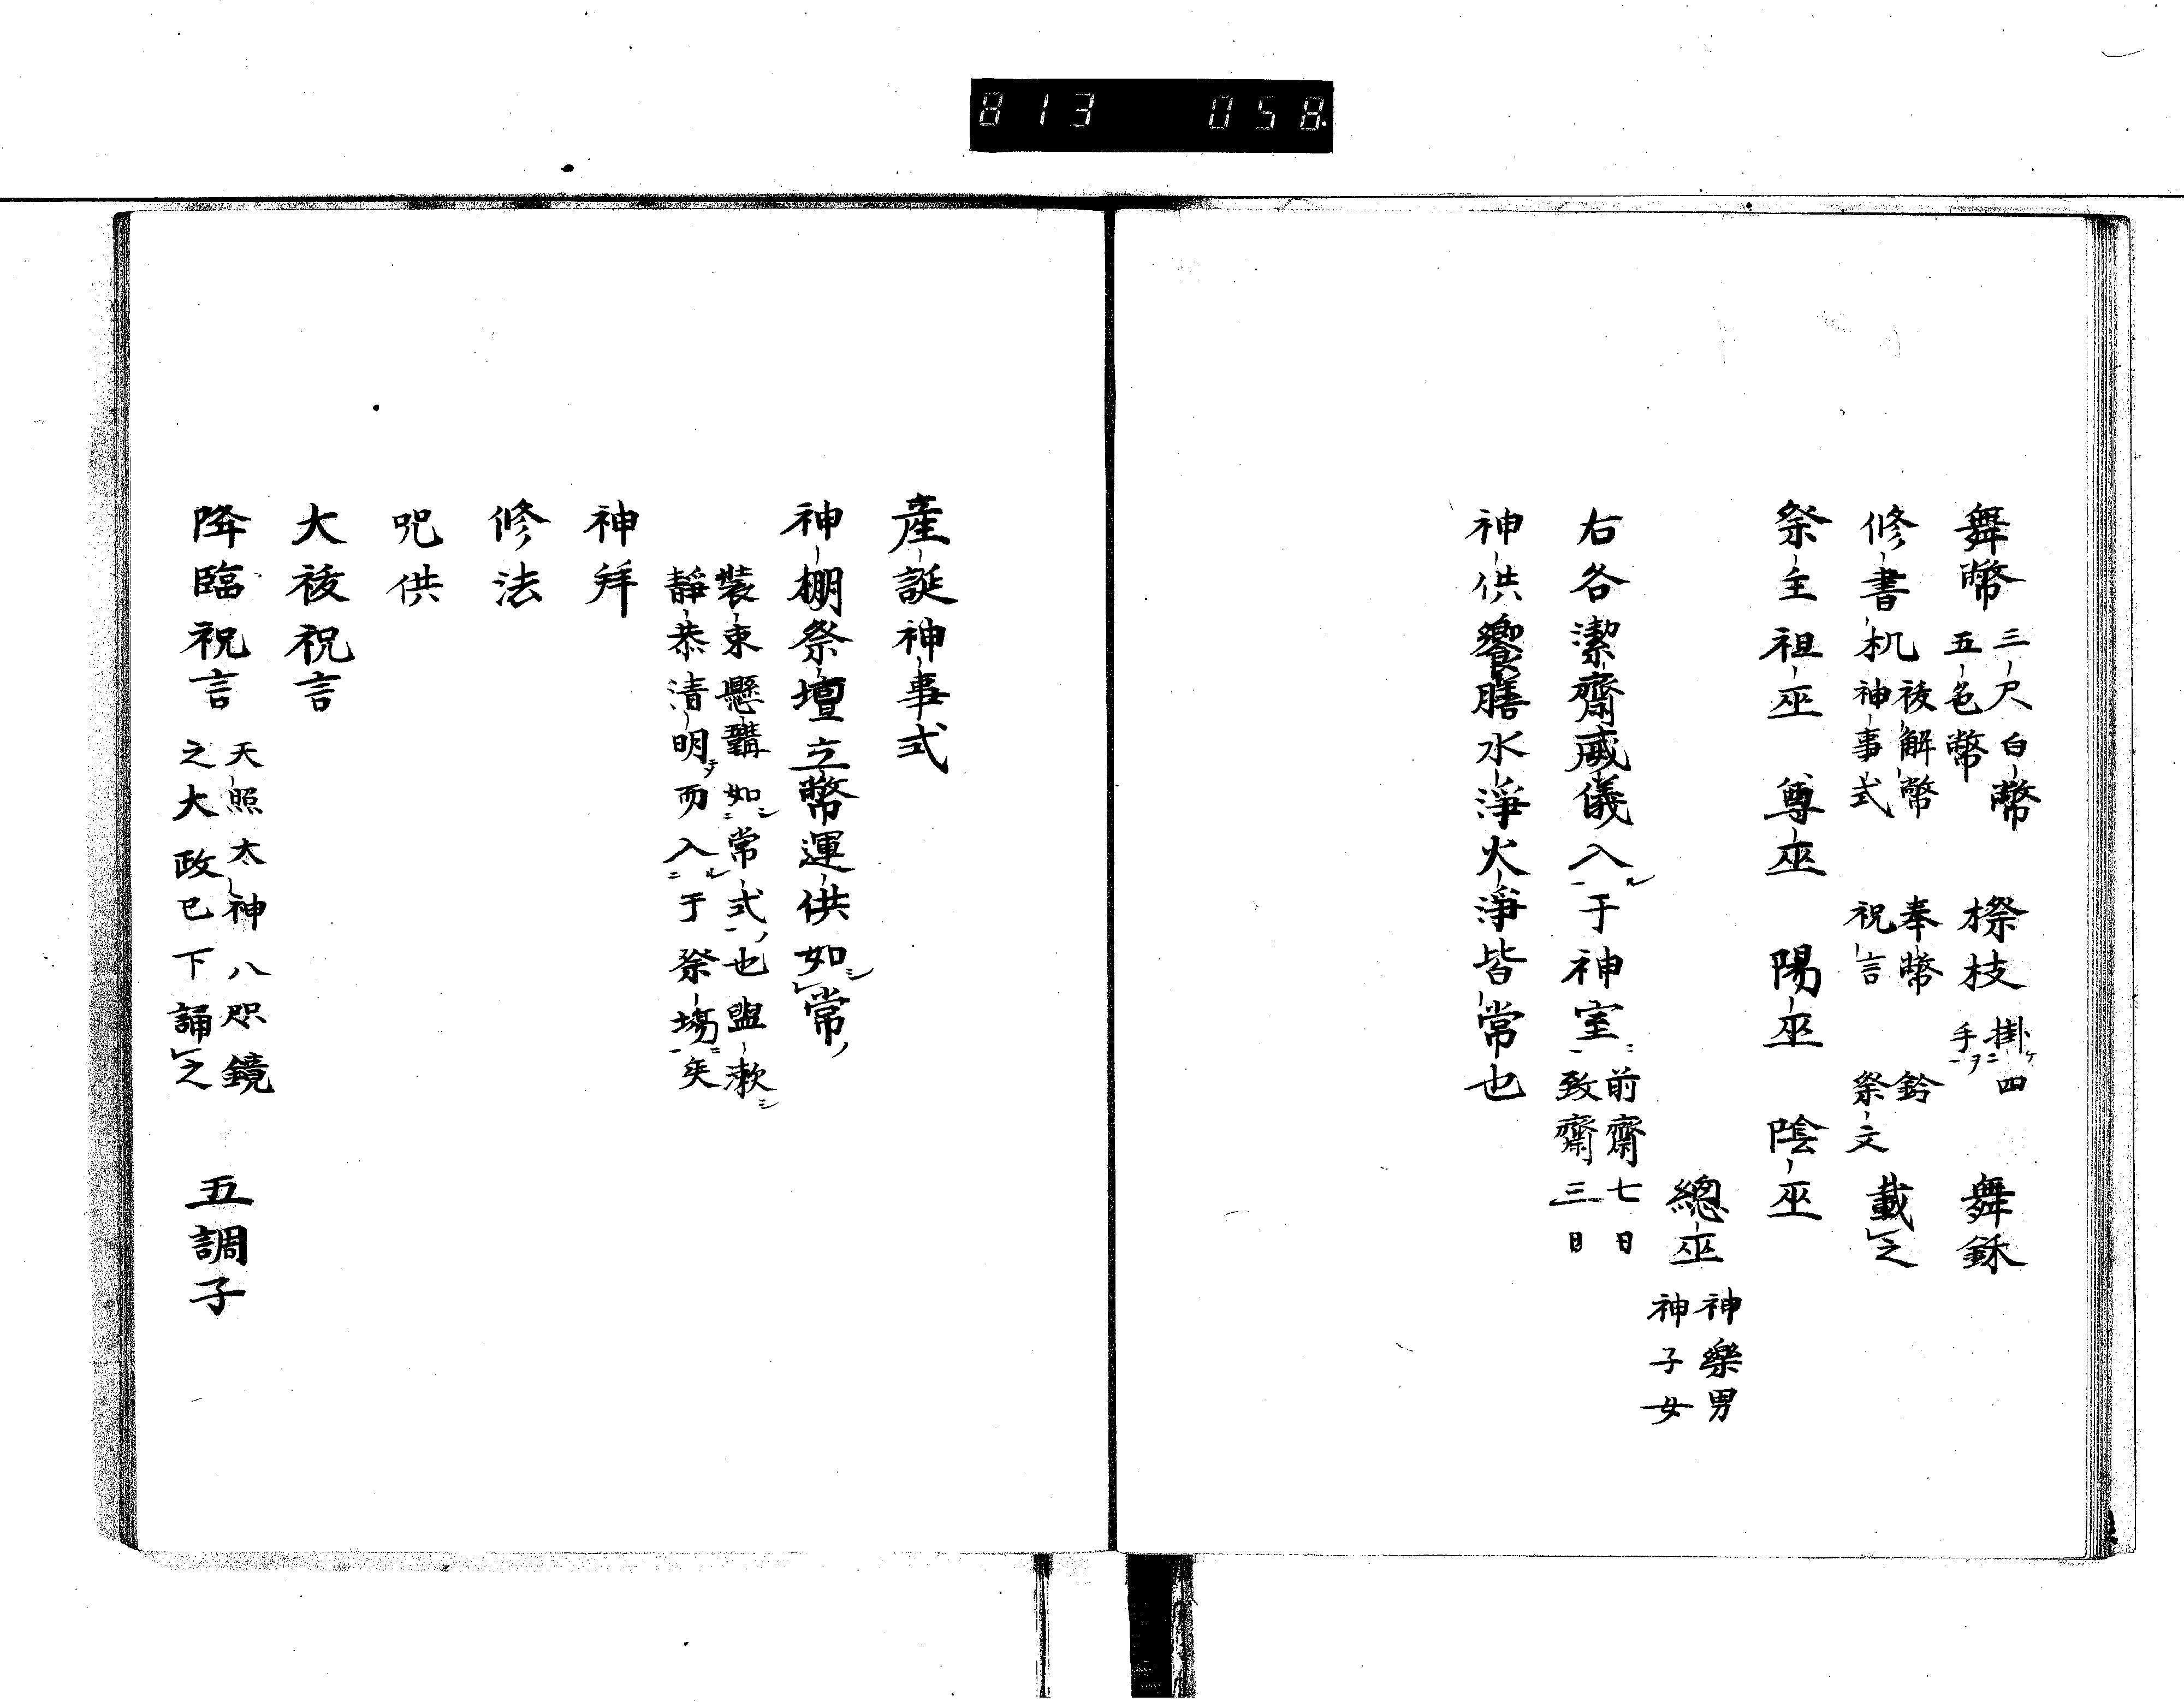 813 058
舞幣 三尺白幣 五色幣 榊枝 掛ケ四手ヲ 舞鉾
修書机 祓解幣 神事式 奉幣 祝言 鈴 祭文 載之
祭主 祖巫 尊巫 陽巫 陰巫
總巫 神樂男 神子女
右各潔齋威儀入ル于神室ニ 前齋七日 致齋三日
神供饗膳水淨火淨皆常也
産誕神事式
神棚祭壇立幣運供如シ常ノ
裝束懸 如シ常式ノ也盥漱シ
靜恭清明ヲ而入ル于祭場ニ矣
神拜
修法
咒供
大祓祝言
降臨祝言 天照太神八咫鏡 之大政已下誦之 五調子